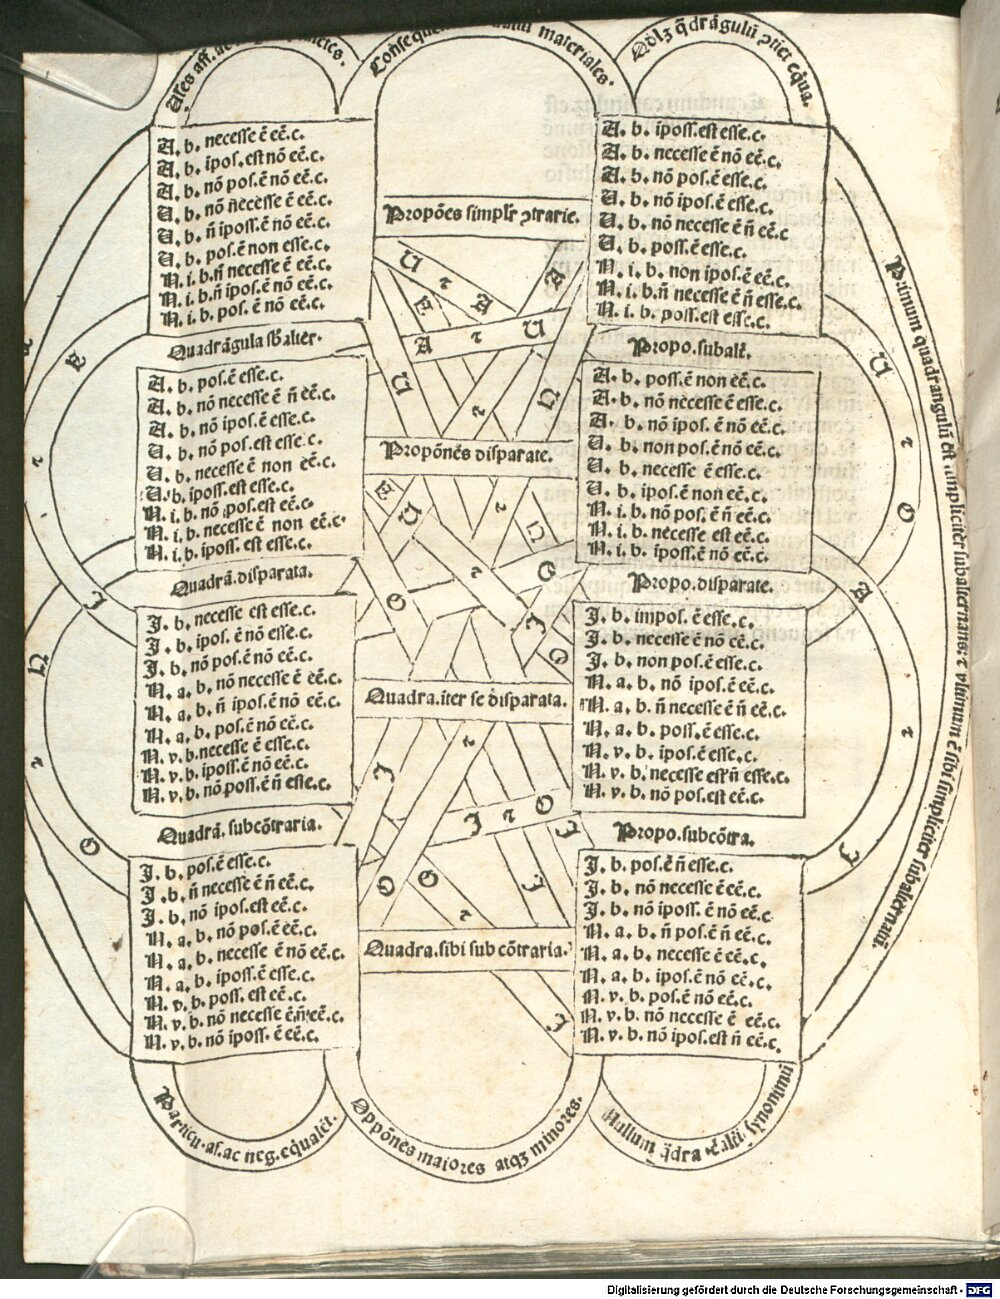 materiales.
A. b. necesse ē eē.c.
A. b. ipos. est nō eē.c.
A. b. nō pos. ē nō eē.c.
U. b. nō necesse ē eē.c.
U. b. n̄ iposs. ē nō eē.c.
U. b. pos. ē non esse.c.
N. i. b. n̄ necesse ē eē.c.
N. i. b. n̄ ipos. ē nō eē.c.
N. i. b. pos. ē nō eē.c.
A. b. iposs. est esse.c.
A. b. necesse ē nō eē.c.
A. b. nō pos. ē esse.c.
U. b. nō ipos. ē esse.c.
U. b. nō necesse ē n̄ eē.c
U. b. poss. ē esse.c.
N. i. b. non ipos. ē eē.c.
N. i. b. n̄ necesse ē n̄ esse.c.
N. i. b. poss. est esse.c.
Propōes simplr ↄtrarie.
Quadrāgula sbalter.
Propo. subalt̄.
A. b. pos. ē esse.c.
A. b. nō necesse ē n̄ eē.c.
A. b. nō ipos. ē esse.c.
U. b. nō pos. est esse.c.
U. b. necesse ē non eē.c.
U. b. iposs. est esse.c.
N. i. b. nō ipos. est eē.c.
N. i. b. necesse ē non eē.c.
N. i. b. iposs. est esse.c.
A. b. poss. ē non eē.c.
A. b. nō necesse ē esse.c.
A. b. nō ipos. ē nō eē.c.
U. b. non pos. ē nō eē.c.
U. b. necesse ē esse.c.
U. b. ipos. ē non eē.c.
N. i. b. nō pos. ē n̄ eē.c.
N. i. b. necesse est eē.c.
N. i. b. iposs. ē nō eē.c.
Propōnēs disparate.
Quadrā. disparata.
Propo. disparate.
I. b. necesse est esse.c.
I. b. ipos. ē nō esse.c.
I. b. nō pos. ē nō eē.c.
N. a. b. nō necesse ē eē.c.
N. a. b. n̄ ipos. ē nō eē.c.
N. a. b. pos. ē nō eē.c.
N. v. b. necesse ē esse.c.
N. v. b. iposs. ē nō eē.c.
N. v. b. nō poss. ē n̄ esse.c.
I. b. impos. ē esse.c.
I. b. necesse ē nō eē.c.
I. b. non pos. ē esse.c.
N. a. b. nō ipos. ē eē.c.
N. a. b. n̄ necesse ē n̄ eē.c.
N. a. b. poss. ē esse.c.
N. v. b. ipos. ē esse.c.
N. v. b. necesse est n̄ esse.c.
N. v. b. nō pos. est eē.c.
Quadra. iter se disparata.
Quadrā. subcōtraria.
Propo. subcōtra.
I. b. pos. ē esse.c.
I. b. n̄ necesse ē n̄ eē.c.
I. b. nō ipos. est eē.c.
N. a. b. nō pos. ē eē.c.
N. a. b. necesse ē nō eē.c.
N. a. b. iposs. ē esse.c.
N. v. b. poss. est eē.c.
N. v. b. nō necesse ē n̄ eē.c.
N. v. b. nō iposs. ē eē.c.
I. b. pos. ē n̄ esse.c.
I. b. nō necesse ē eē.c.
I. b. nō iposs. ē nō eē.c
N. a. b. n̄ pos. ē n̄ eē.c.
N. a. b. necesse ē eē.c.
N. a. b. ipos. ē nō eē.c.
N. v. b. pos. ē nō eē.c.
N. v. b. nō necesse ē eē.c.
N. v. b. nō ipos. est n̄ eē.c.
Quadra. sibi sub cōtraria.
Primum quadrangulū est simpliciter subalternans: ⁊ vltimum ē sibi simpliciter subalternatū.
Particu. af. ac neg. equalēt.
Oppōnes maiores atqꝫ minores.
Nullum synonimū
Digitalisierung gefördert durch die Deutsche Forschungsgemeinschaft - DFG